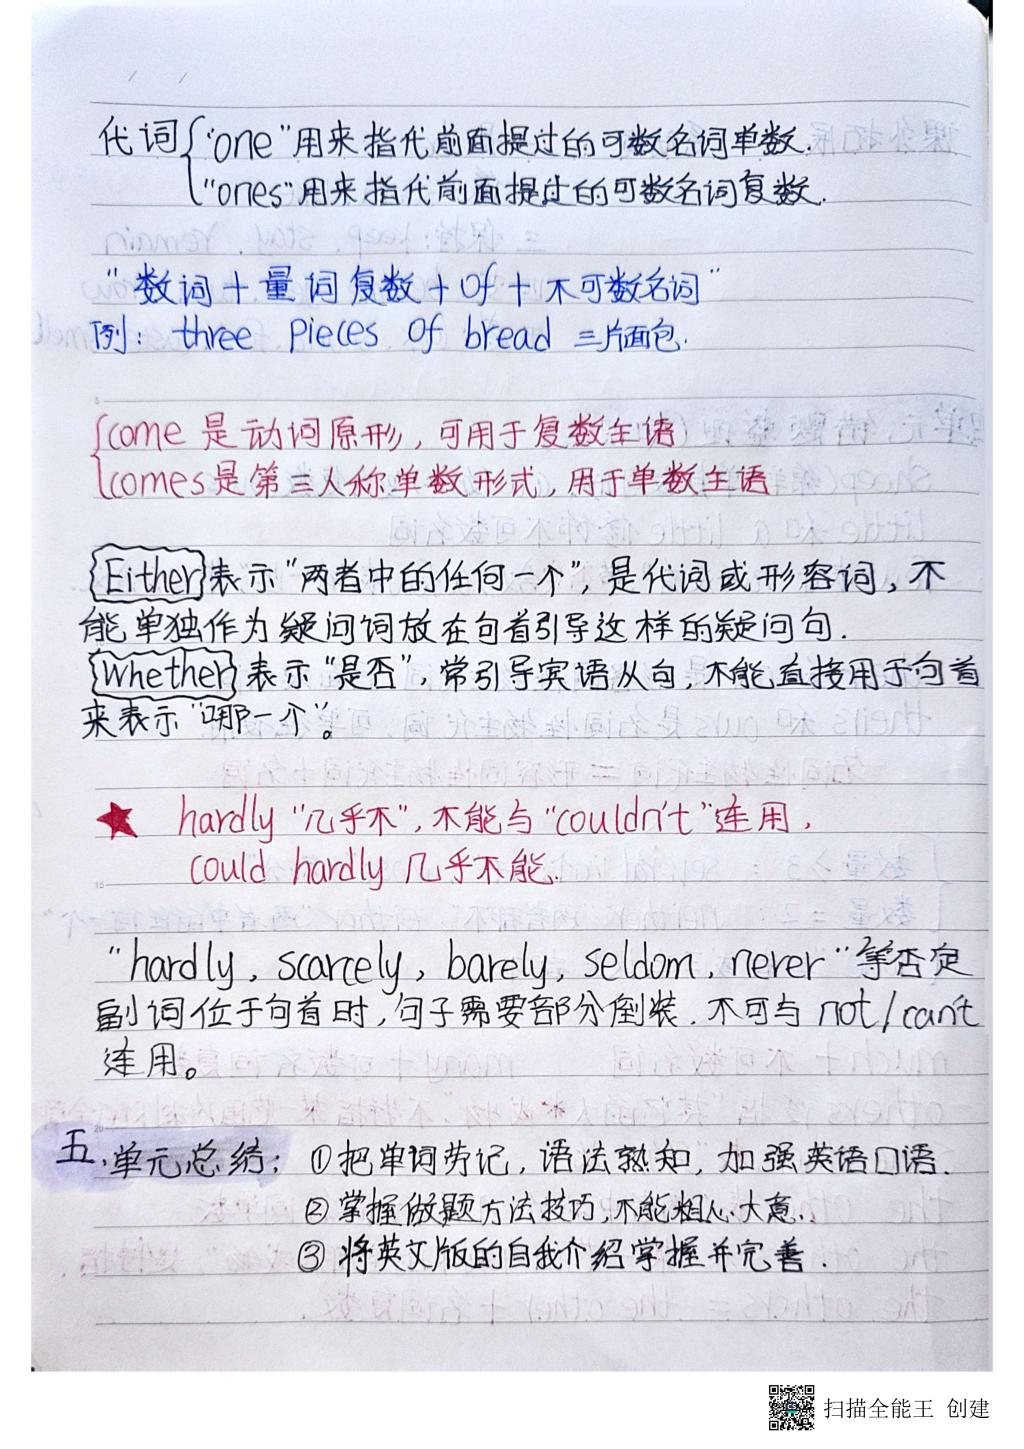 代词{"one"用来指代前面提过的可数名词单数.
"ones"用来指代前面提过的可数名词复数.
"数词+量词复数+of+不可数名词"
例: three pieces of bread 三片面包.
come 是动词原形,可用于复数主语
comes是第三人称单数形式,用于单数主语
Either表示"两者中的任何一个",是代词或形容词,不
能单独作为疑问词放在句首引导这样的疑问句.
Whether表示"是否",常引导宾语从句,不能直接用于句首
来表示"哪一个"。
★ hardly "几乎不",不能与"couldn't"连用,
could hardly 几乎不能.
"hardly, scarcely, barely, seldom, never"等否定
副词位于句首时,句子需要部分倒装.不可与 not/can't
连用。
五.单元总结: ①把单词劳记,语法熟知,加强英语口语.
②掌握做题方法技巧,不能粗心大意.
③将英文版的自我介绍掌握并完善.
扫描全能王 创建